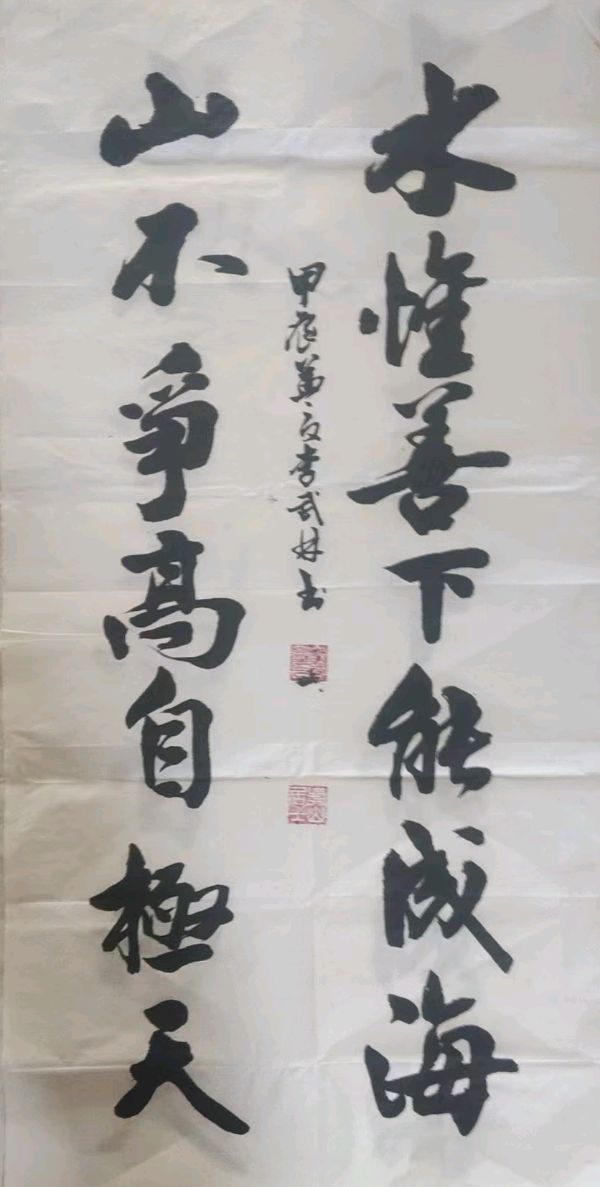 水惟善下能成海
山不爭高自極天
甲辰 李武林书